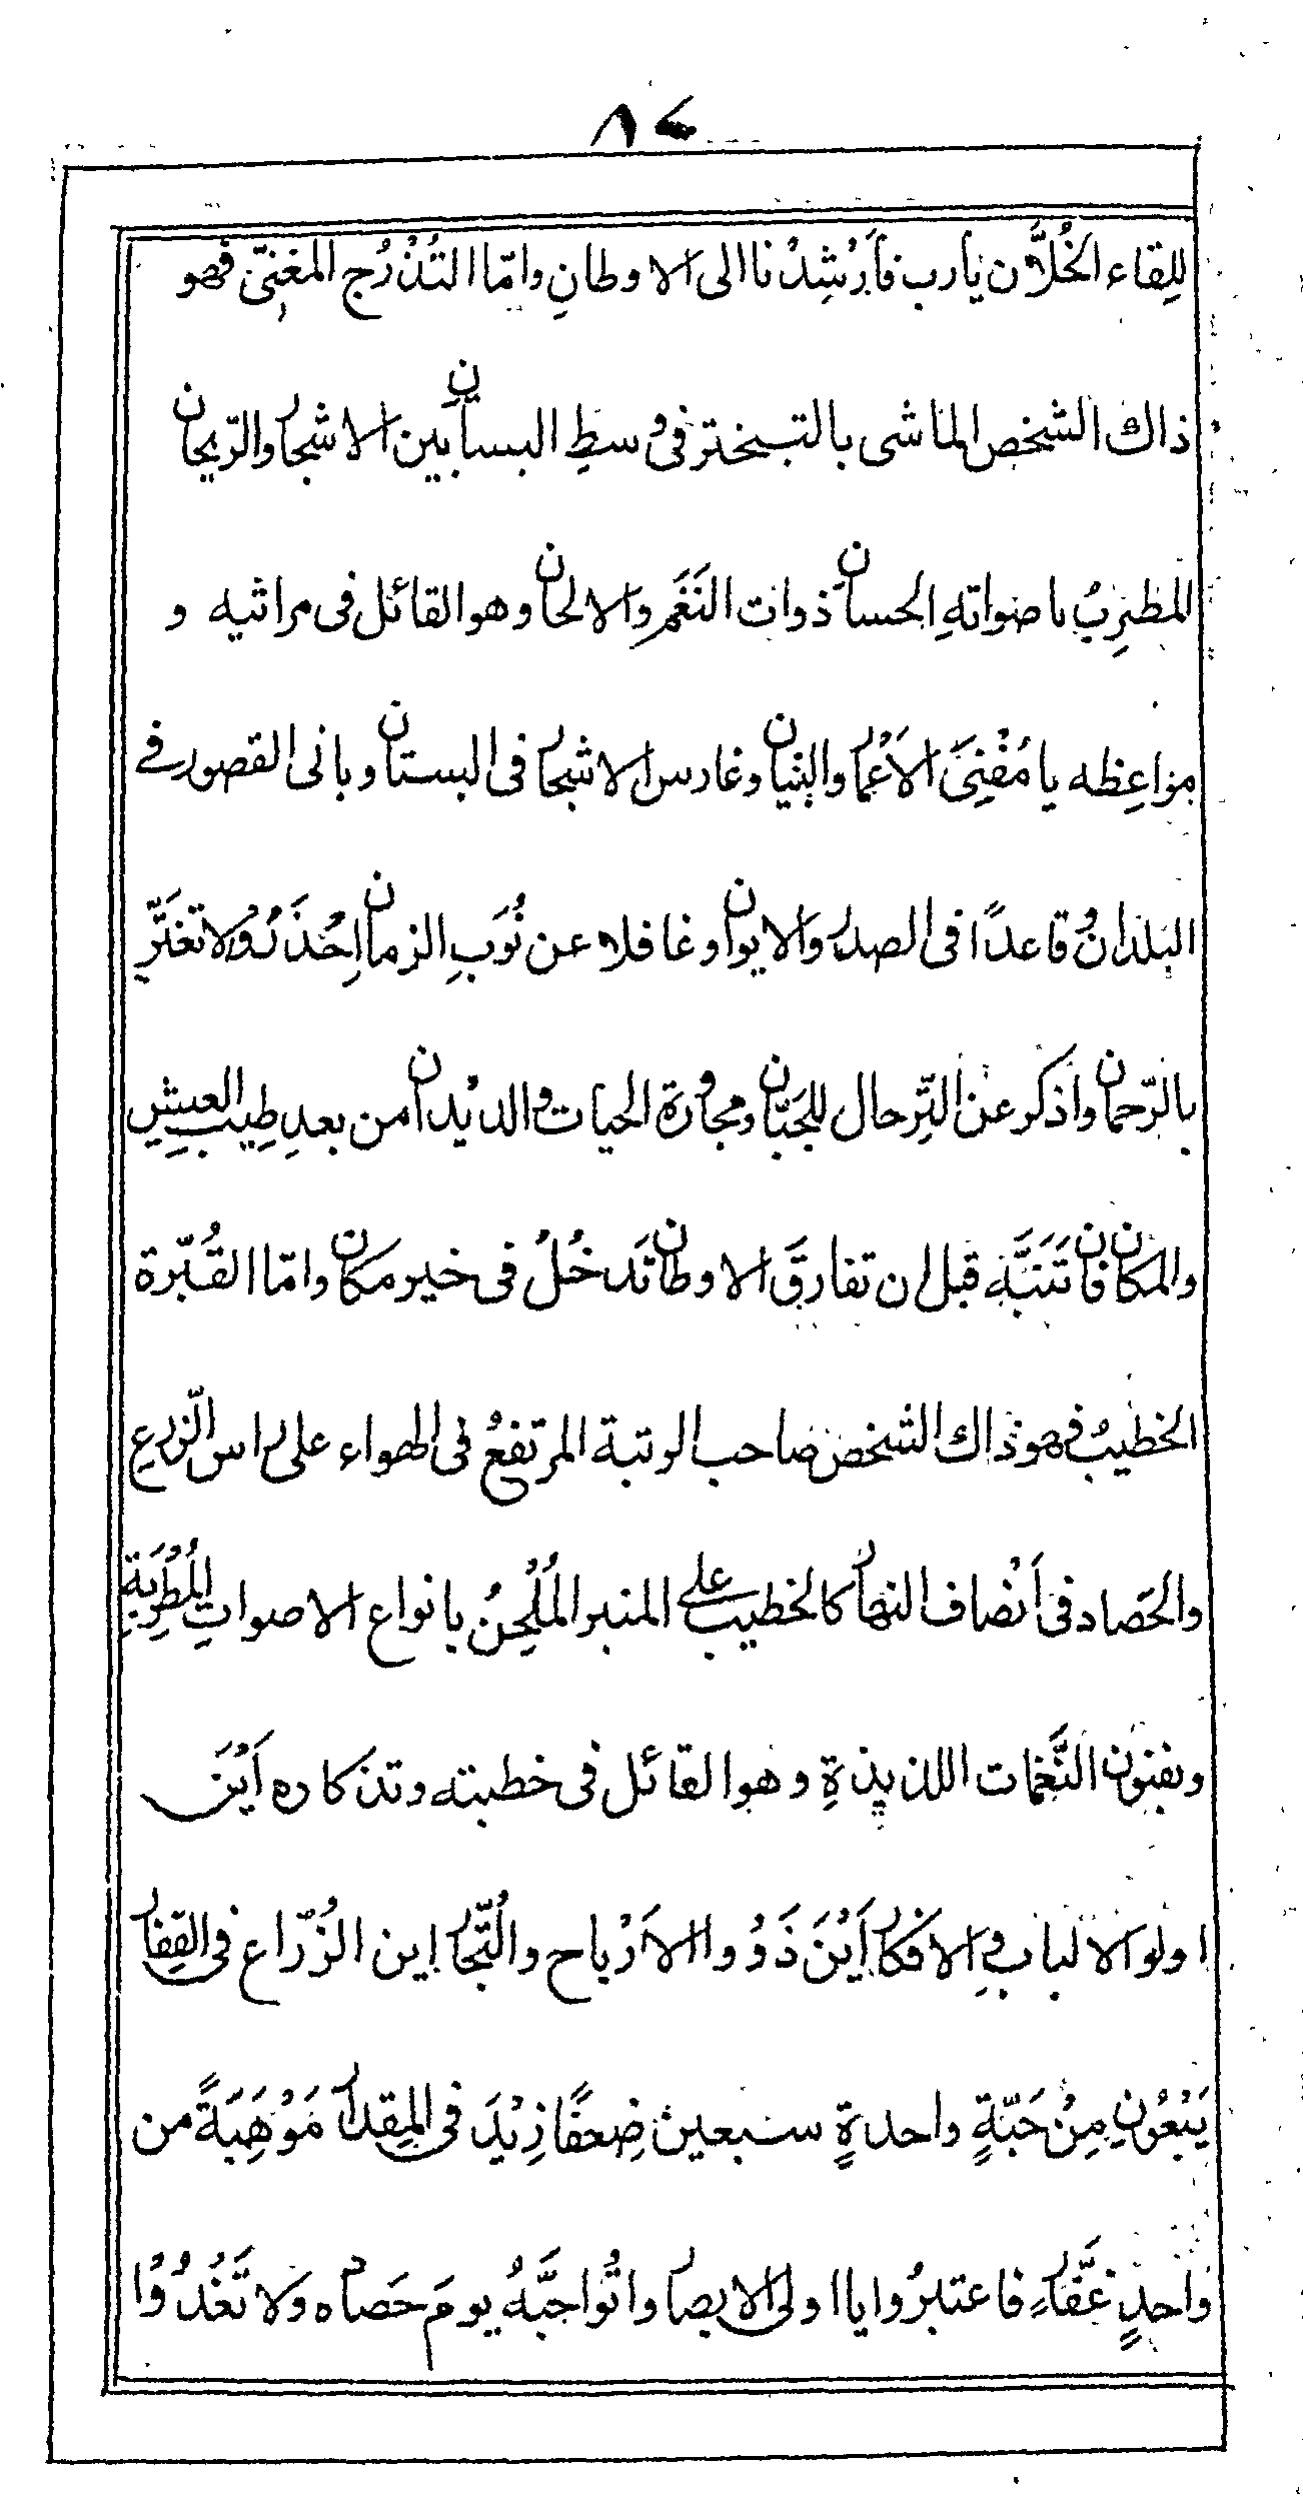 ٨٤
لِلِقاء الخُلَّان يا رب فَأَرْشِدْنا الى الاوطانِ وامّا التُدْرُج المغنِىّ فهو
ذاك الشخص الماشى بالتبختر فى وسطِ البساتن بين الاشجار والرّيحان
المطرِبُ باصواتهِ الحسان ذوات النَغَمِ والالحان وهو القائل فى مراثيه و
مواعِظه يا مُفْنِىَ الاَعْمار والبنيان وغارس الاشجار فى البستان وبانى القصور فے
البلدان وقاعدًا فى الصدر والايوان وغافلا عن نُوَبِ الزمان اِحْذَرُوا ولا تغتَرِّ
بالرّحمان واَذكر عن التَّرحال للجَبّان ومجاورة الحيات والديْدان من بعدِ طِيب العيشِ
والمكان فان تَتَنَبَّه قبل ان تفارقَ الاوطان تَدخُلُ فى خير مكان وامّا القُبّرة
الخطيبُ فهو ذاك الشخص صاحب الرتبة المرتفعُ فى الهواء على راس الزرعِ
والحَصاد فى اَنْصاف النهار كالخطيب على المنبر المُلْحِنُ بانواع الاصواتِ المُطْرِبَةِ
وبفنون النَّغمات اللذيذةِ وهو القائل فى خطبته وتذكاره اَيْنَ
اولو الالباب والافكار اَيْنَ ذَوُوا الاَرْباح والتُّجار اين الزُرّاع فى القِفار
يَبْغُونِ مِنْ حَبّةٍ واحدةٍ سبعين ضِعفًا زِيْدَ فى المِقدار مَوْهِبَةً من
واحدٍ غَفّارٍ فاعتبرُوا يا اولى الابصار واتُوا حَقَّهُ يومَ حَصاده ولا تَغْدُوْا